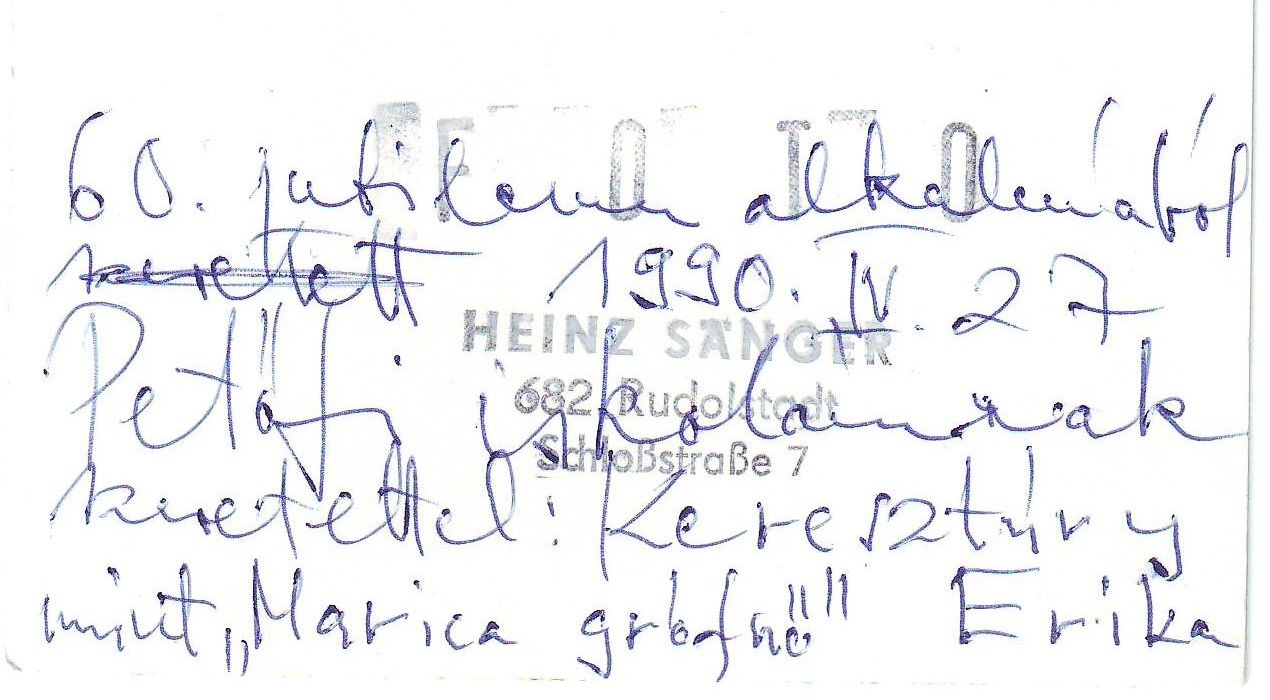 FOTO
60. jubileum alkalmából
szeretett 1990. IV. 27
HEINZ SÄNGER
682 Rudolstadt
Petőfi iskolámnak
Schloßstraße 7
szeretettel: Keresztúry
mint „Marica grófnő" Erika